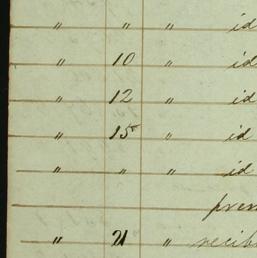 " " " id
" 10 " id
" 12 " id
" 15 " id
" " " id
" 21 "